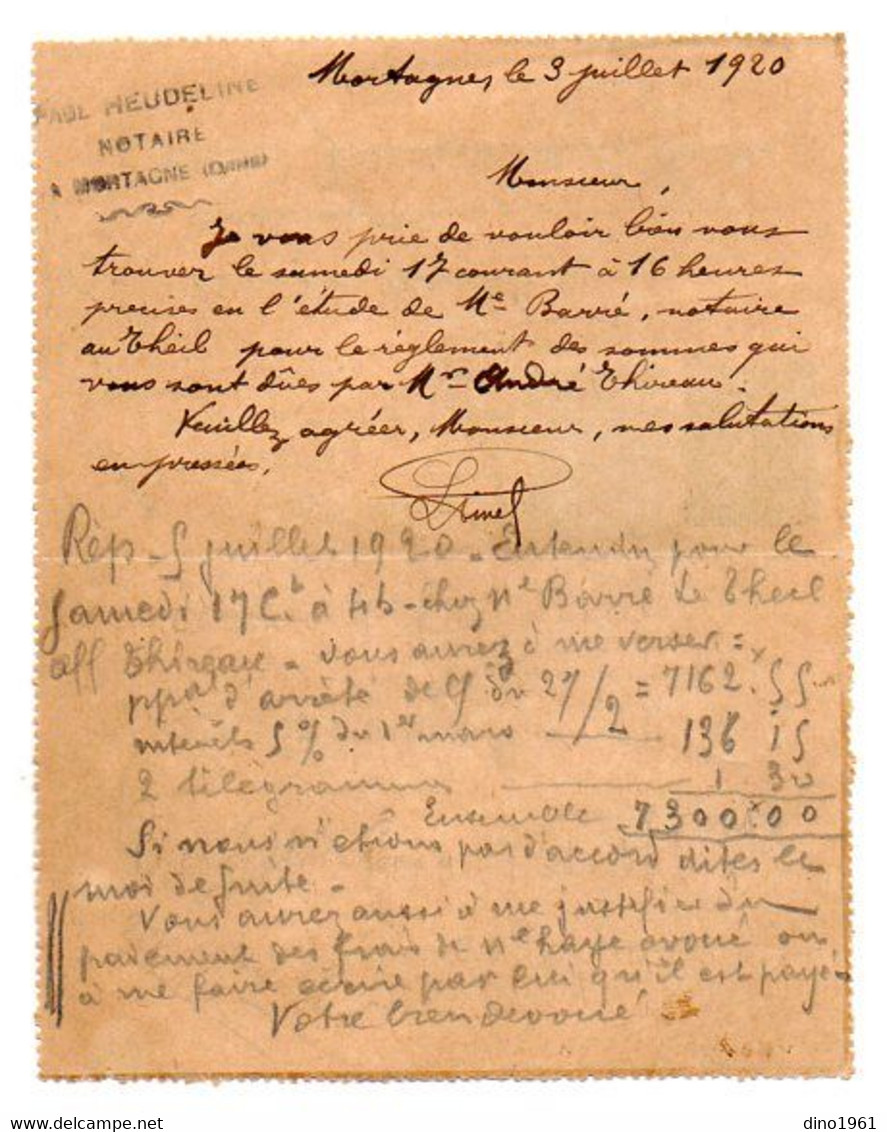 Mortagne, le 3 juillet 1920
PAUL HEUDELINE
NOTAIRE
A MORTAGNE (ORNE)
Monsieur,
Je vous prie de vouloir bien vous
trouver le samedi 17 courant à 16 heures
precises en l'étude de Me Barré, notaire
au Theil pour le règlement des sommes qui
vous sont dûes par Mr André Thireau.
Veuillez agréer, Monsieur, mes salutations
empressées.
Rép - 5 juillet 1920 - Entendu pour le
Samedi 17 Ct à 4h - chez Me Barré Le Theil
aff Thireau - vous aurez à me verser =
ppal d'arrêté de du 27/2 = 7162.55
intérêts 5% du 1er mars — 136 15
2 télégrammes — 1 30
Ensemble 7300.00
Si nous n'étions pas d'accord dites le
moi de suite -
Vous aurez aussi à me justifier du
paiement des frais de Me haye avoué ou
à me faire écrire par lui qu'il est payé -
Votre bien dévoué
dino1961